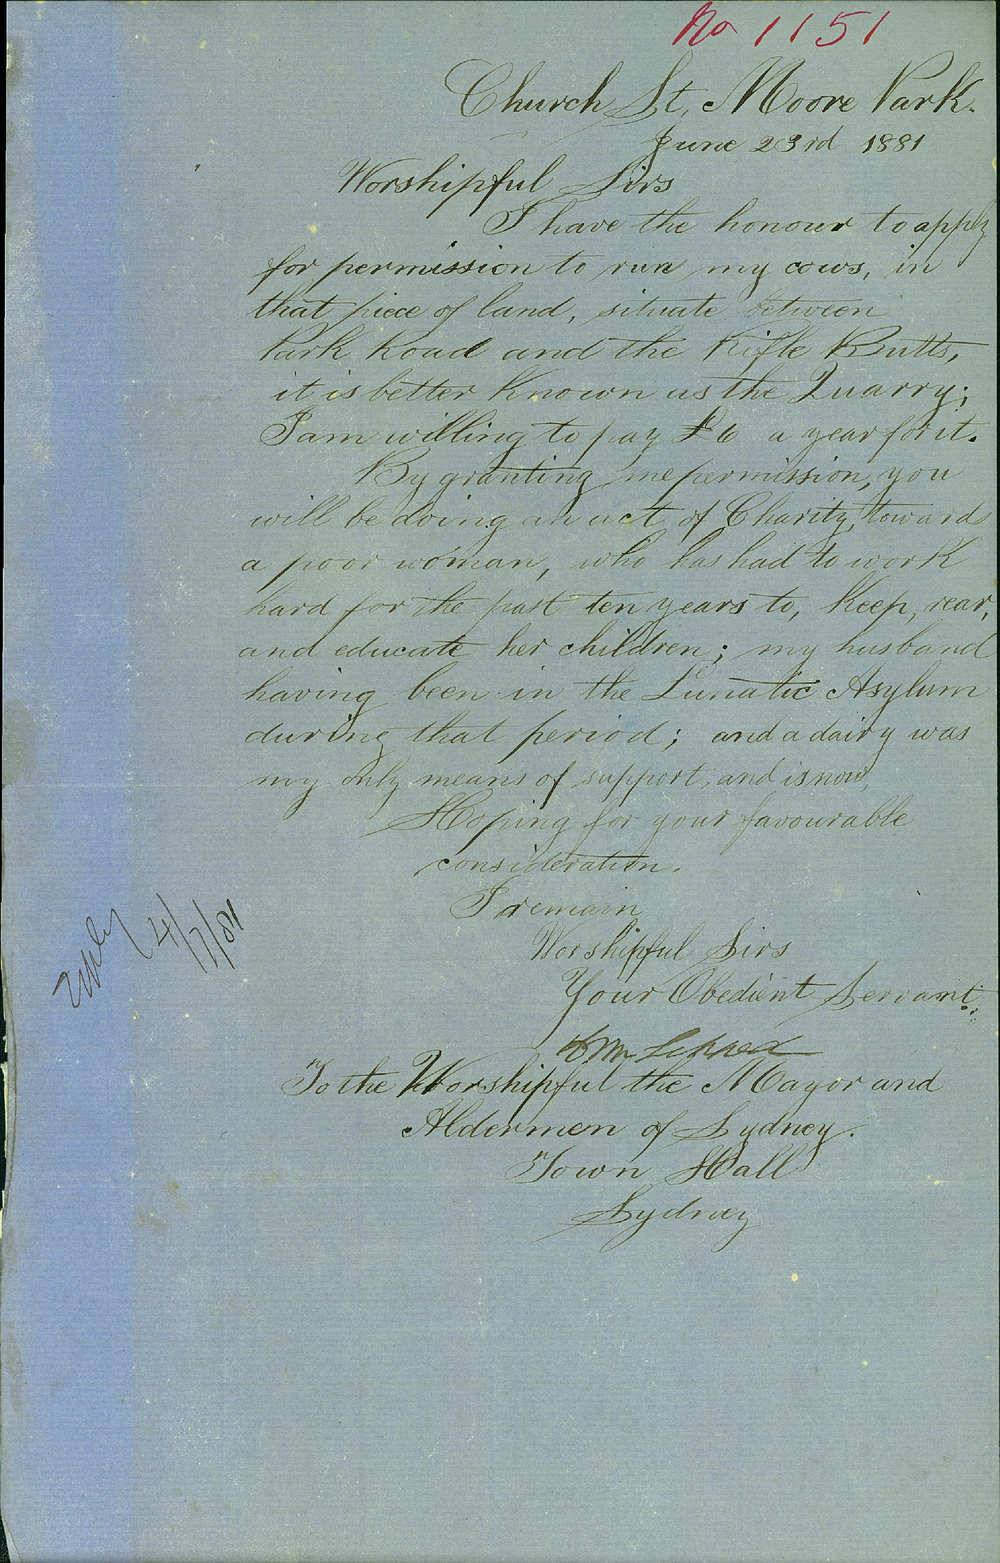 No 1151
Church St, Moore Park.
June 23rd 1881
Worshipful Sirs
I have the honour to apply
for permission to run my cows, in
that piece of land, situate between
Park Road and the Rifle Butts,
it is better known as the Quarry;
I am willing to pay £6 a year for it.
By granting me permission, you
will be doing an act of Charity, toward
a poor woman, who has had to work
hard for the past ten years to, keep, rear,
and educate her children; my husband
having been in the Lunatic Asylum
during that period; and a dairy was
my only means of support, and is now,
Hoping for your favourable
consideration.
I remain
Worshipful Sirs
Your Obedient Servant.
To the Worshipful the Mayor and
Aldermen of Sydney.
Town Hall
Sydney
4/7/81